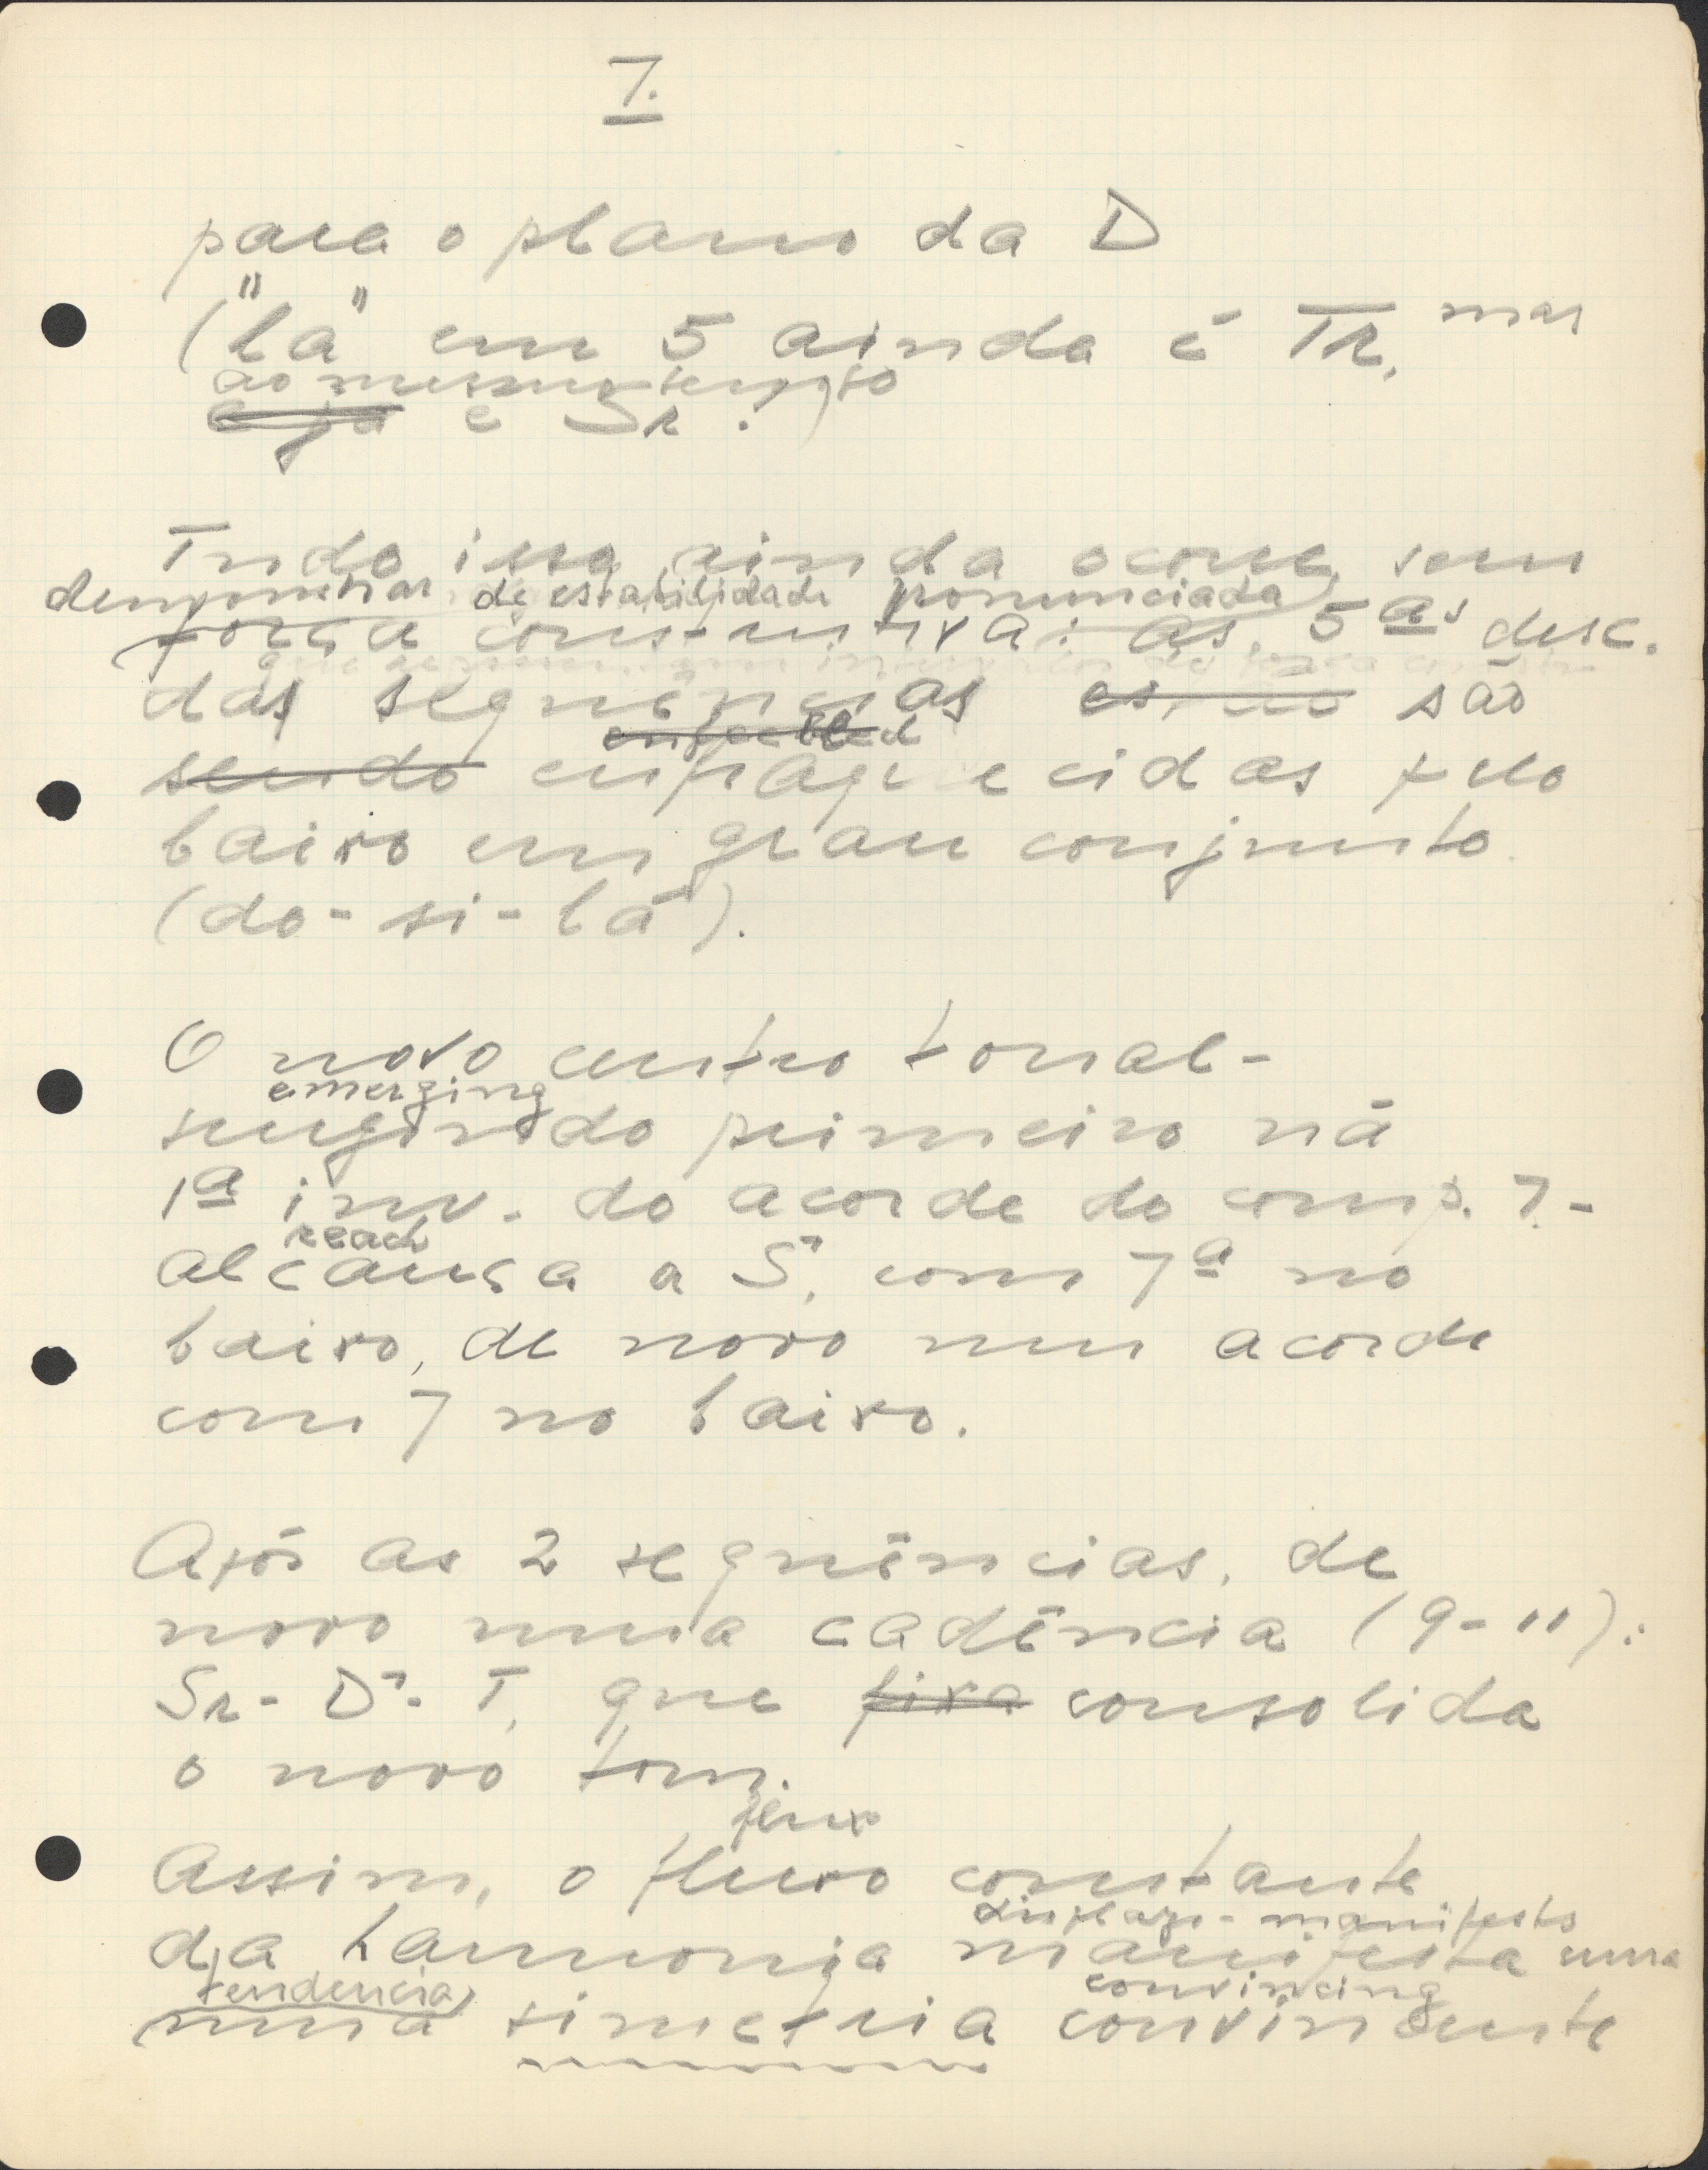 7.
para o plano da D
("lá" em 5 ainda é TR, mas
ao mesmo tempo
e já é SR!)
Tudo isso ainda ocorre sem
demonstrar de estabilidade pronunciada
força construtiva: as 5ªs desc.
das seqüências são
enfeebled
sendo enfraquecidas pelo
baixo em grau conjunto
(do-si-lá).
O novo centro tonal-
emerging
surgindo primeiro na
1ª inv. do acorde do comp. 7-
reach
alcança a S7, com 7ª no
baixo, de novo num acorde
com 7 no baixo.
Após as 2 seqüências, de
novo numa cadência (9-11):
SR- D7- T, que fixa consolida
o novo tom.
flux
Assim, o fluxo constante
displays - manifests
da harmonia manifesta uma
tendencia convincing
uma simetria convincente